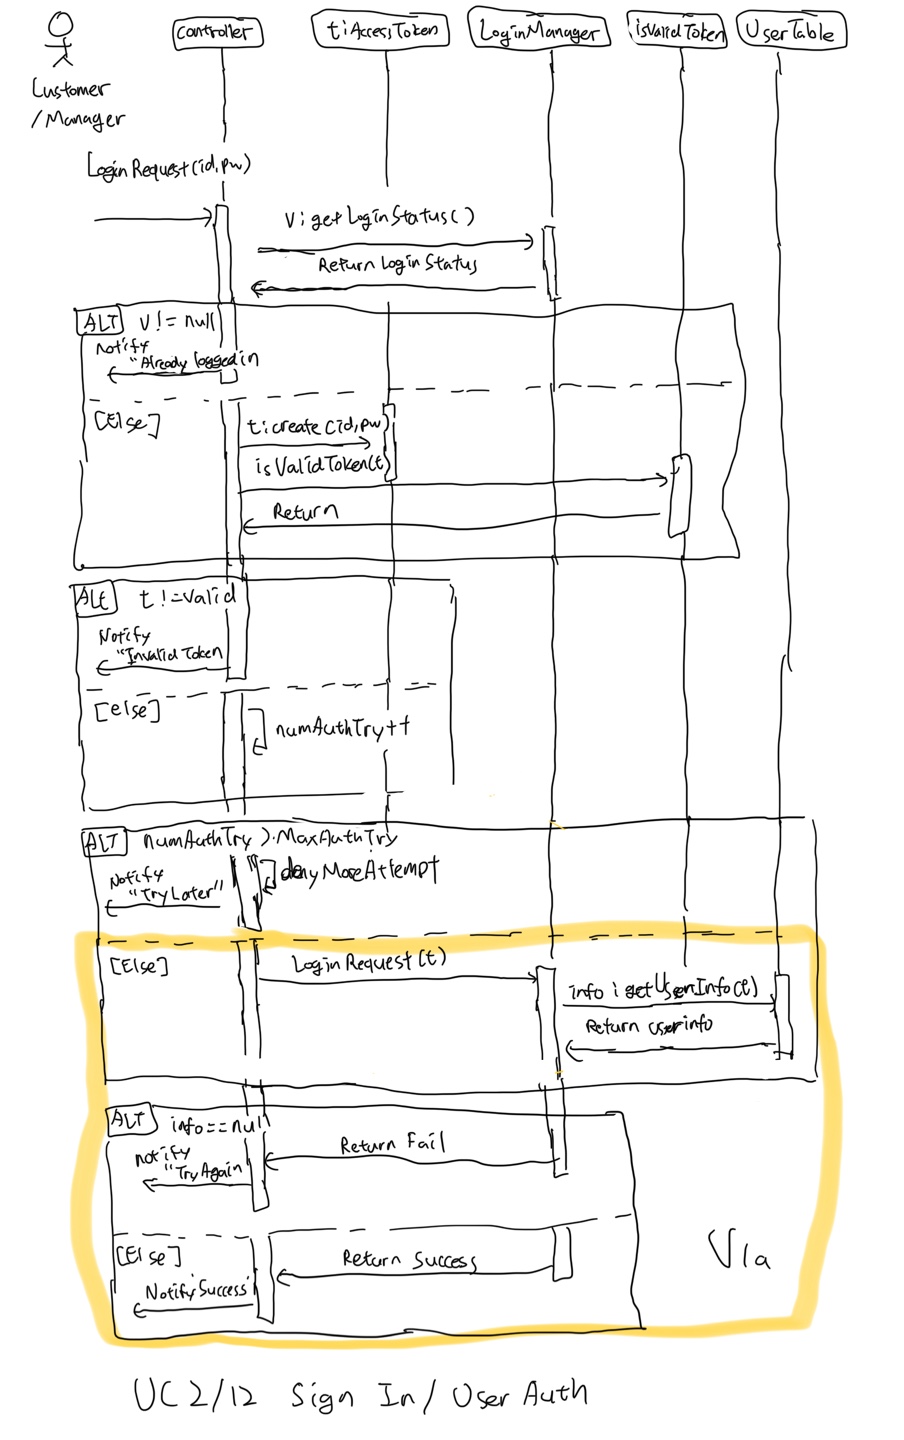 Controller
t:AccessToken
LoginManager
isValidToken
UserTable
Customer
/Manager
LoginRequest(id,pw)
V:getLoginStatus()
Return Login Status
ALT V != null
Notify
"Already logged in
[Else]
t:create(id,pw)
isValidToken(t)
Return
Alt t !=valid
Notify
"Invalid Token
[else]
numAuthTry++
ALT numAuthTry >.MaxAuthTry
Notify
"Try Later"
denyMoreAttempt
[Else]
LoginRequest(t)
info : getUserInfo(t)
Return userinfo
ALT info==null
Return Fail
notify
"TryAgain
[Else]
Return Success
Notify"Success"
V1a
UC2/12 Sign In/ User Auth